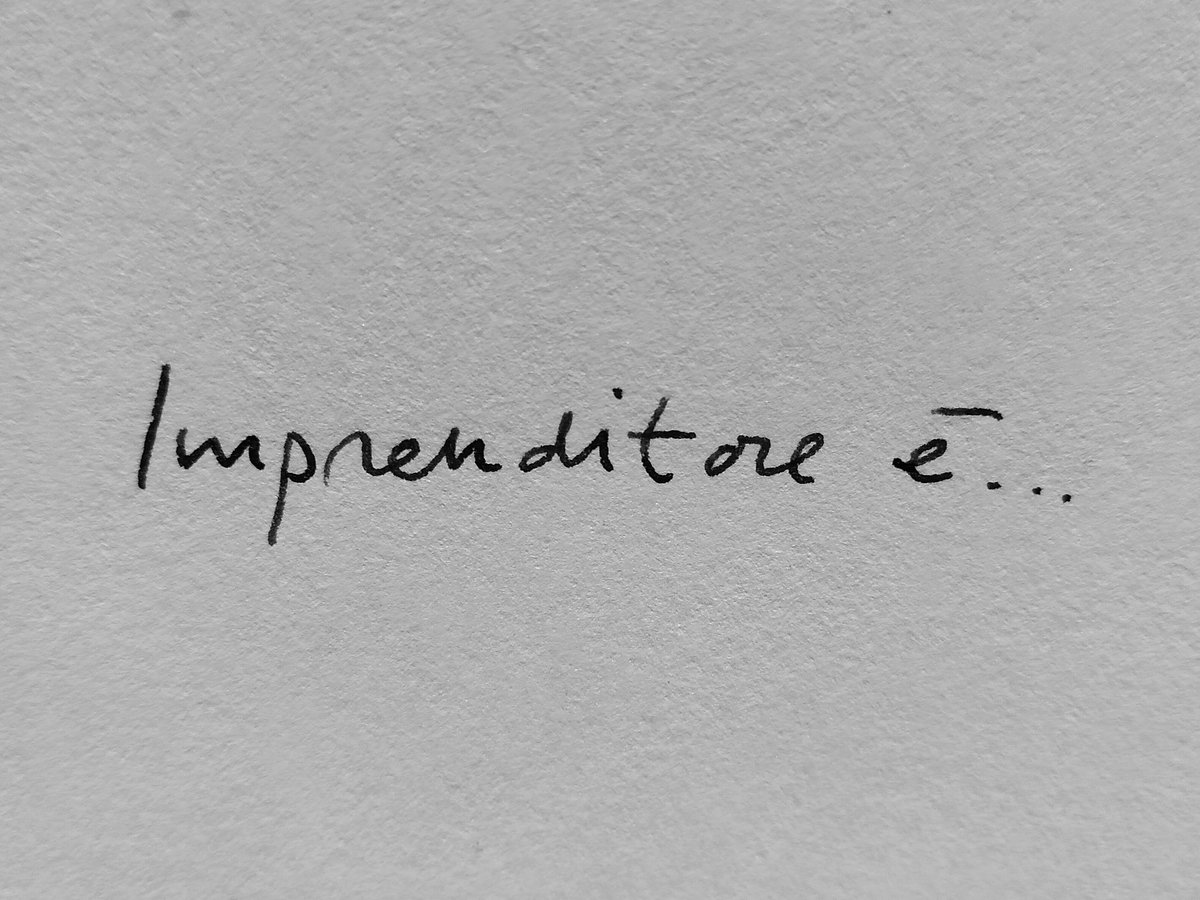 Imprenditore è...